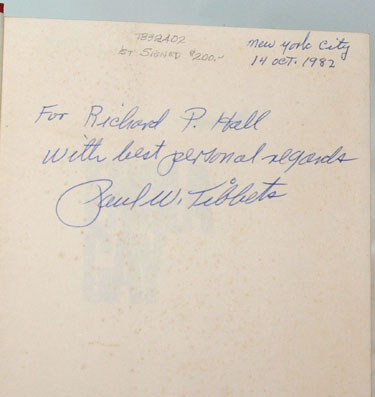 New York City
14 OCT. 1982
1st SIGNED $200.-
For Richard P. Hall
with best personal regards
Paul W. Tibbets